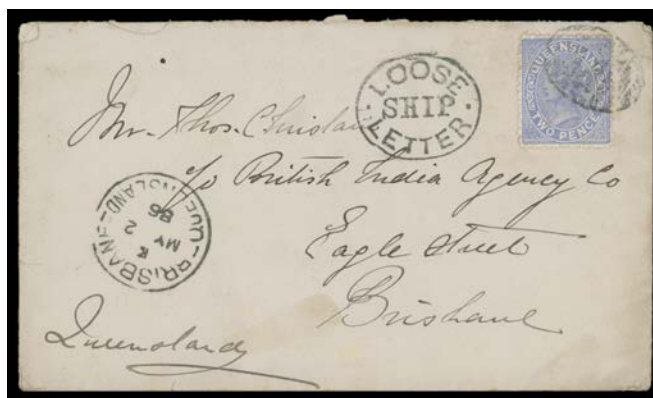 QUEENSLAND
TWO PENCE
LOOSE
SHIP
LETTER
Mr. Thos. C
c/o British India Agency Co
Eagle Street
Brisbane
Queensland
BRISBANE QUEENSLAND
MY 2
86